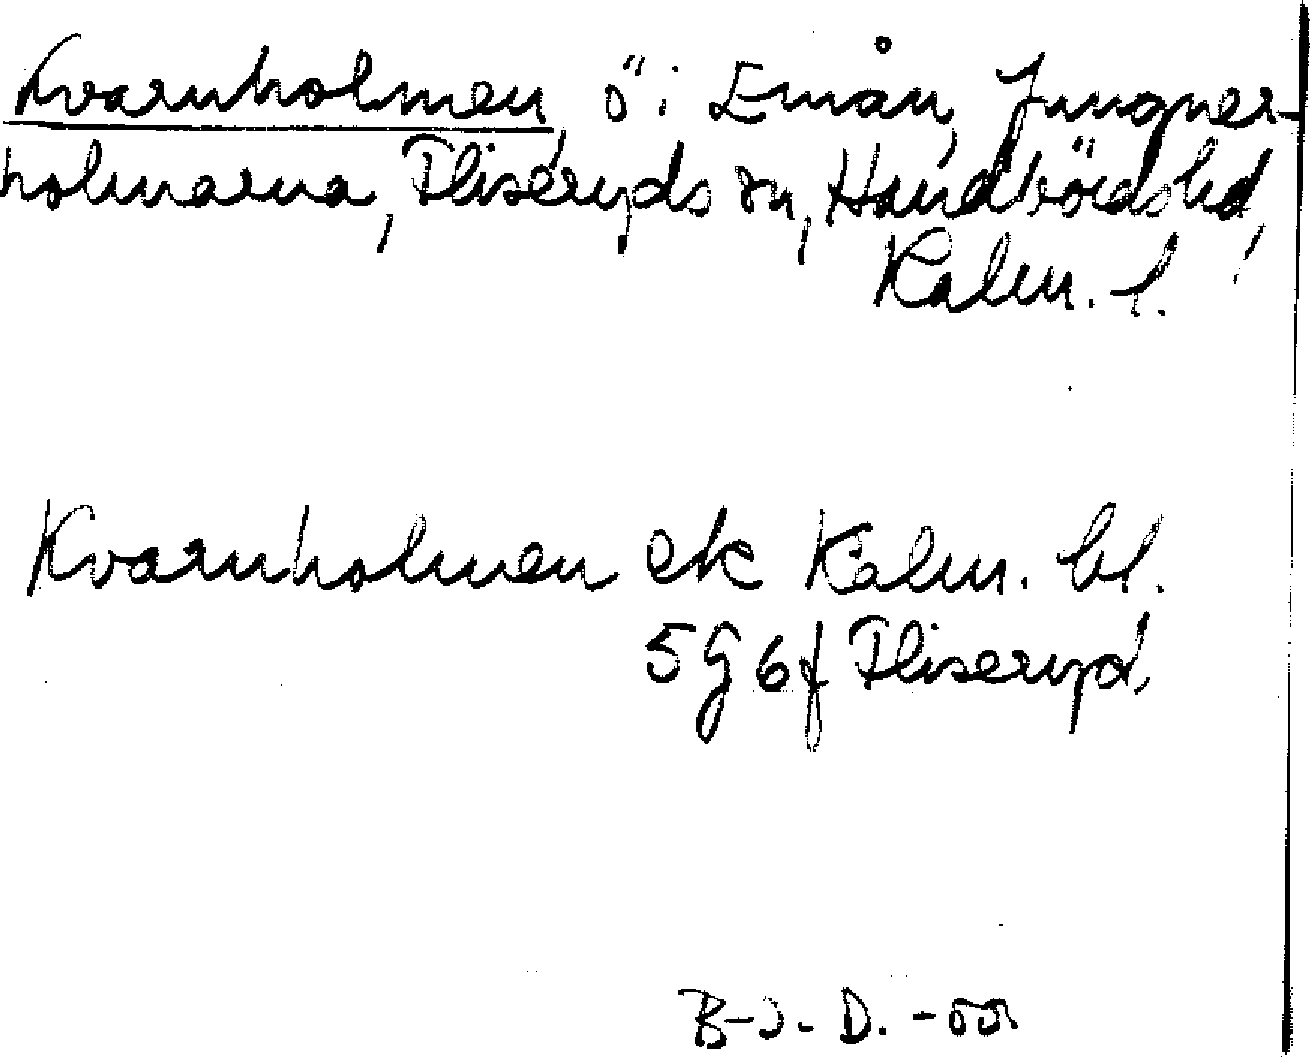 Kvarnholmen, ö i Emån, Jungner-
holmarna, Fliseryds sn, Handbörds hd,
Kalm. l.
Kvarnholmen ek Kalm. bl.
5 G 6 f Fliseryd.
B-J. D. -55